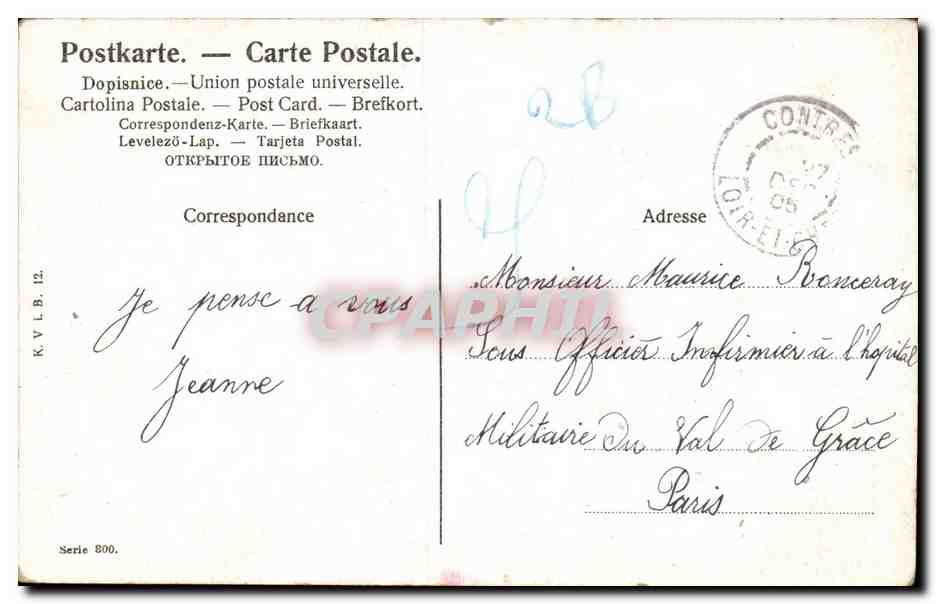 Postkarte. — Carte Postale.
Dopisnice. — Union postale universelle.
Cartolina Postale. — Post Card. — Brefkort.
Correspondenz-Karte. — Briefkaart.
Levelező-Lap. — Tarjeta Postal.
ОТКРЫТОЕ ПИСЬМО.
Correspondance
Je pense a vous
Jeanne
K. V i. B. 12.
Serie 800.
2B
CONTRES
27
DEC
05
LOIR-ET-CH
Adresse
Monsieur Maurice Ronceray
Sous Officier Infirmier à l'hopital
Militaire Du Val de Grâce
Paris
CPAPHIL